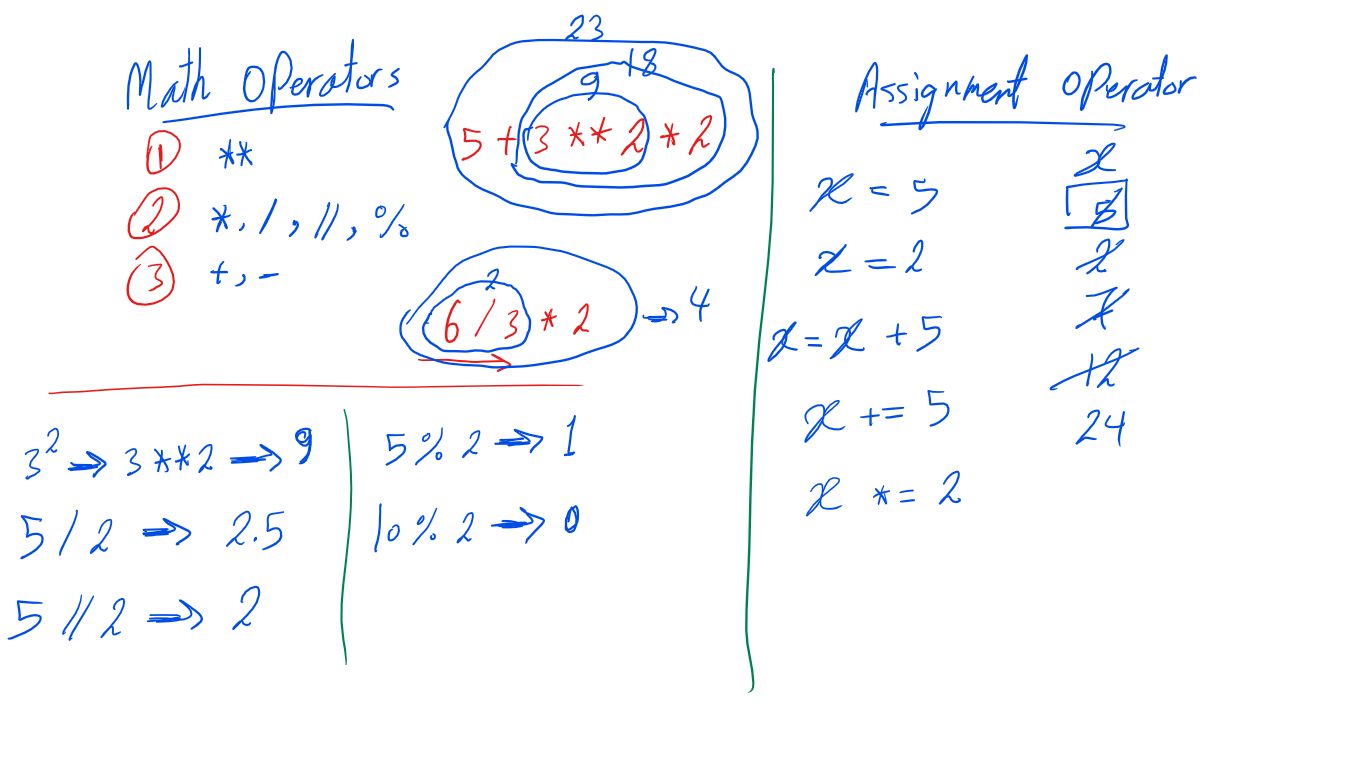 Math Operators
① **
② *, /, //, %
③ +, -
23
18
9
5 + 3 ** 2 * 2
2
6 / 3 * 2 → 4
3² → 3 ** 2 → 9
5 / 2 → 2.5
5 // 2 → 2
5 % 2 → 1
10 % 2 → 0
Assignment Operator
x
x = 5
5
x = 2
2
x = x + 5
7
x += 5
12
x *= 2
24